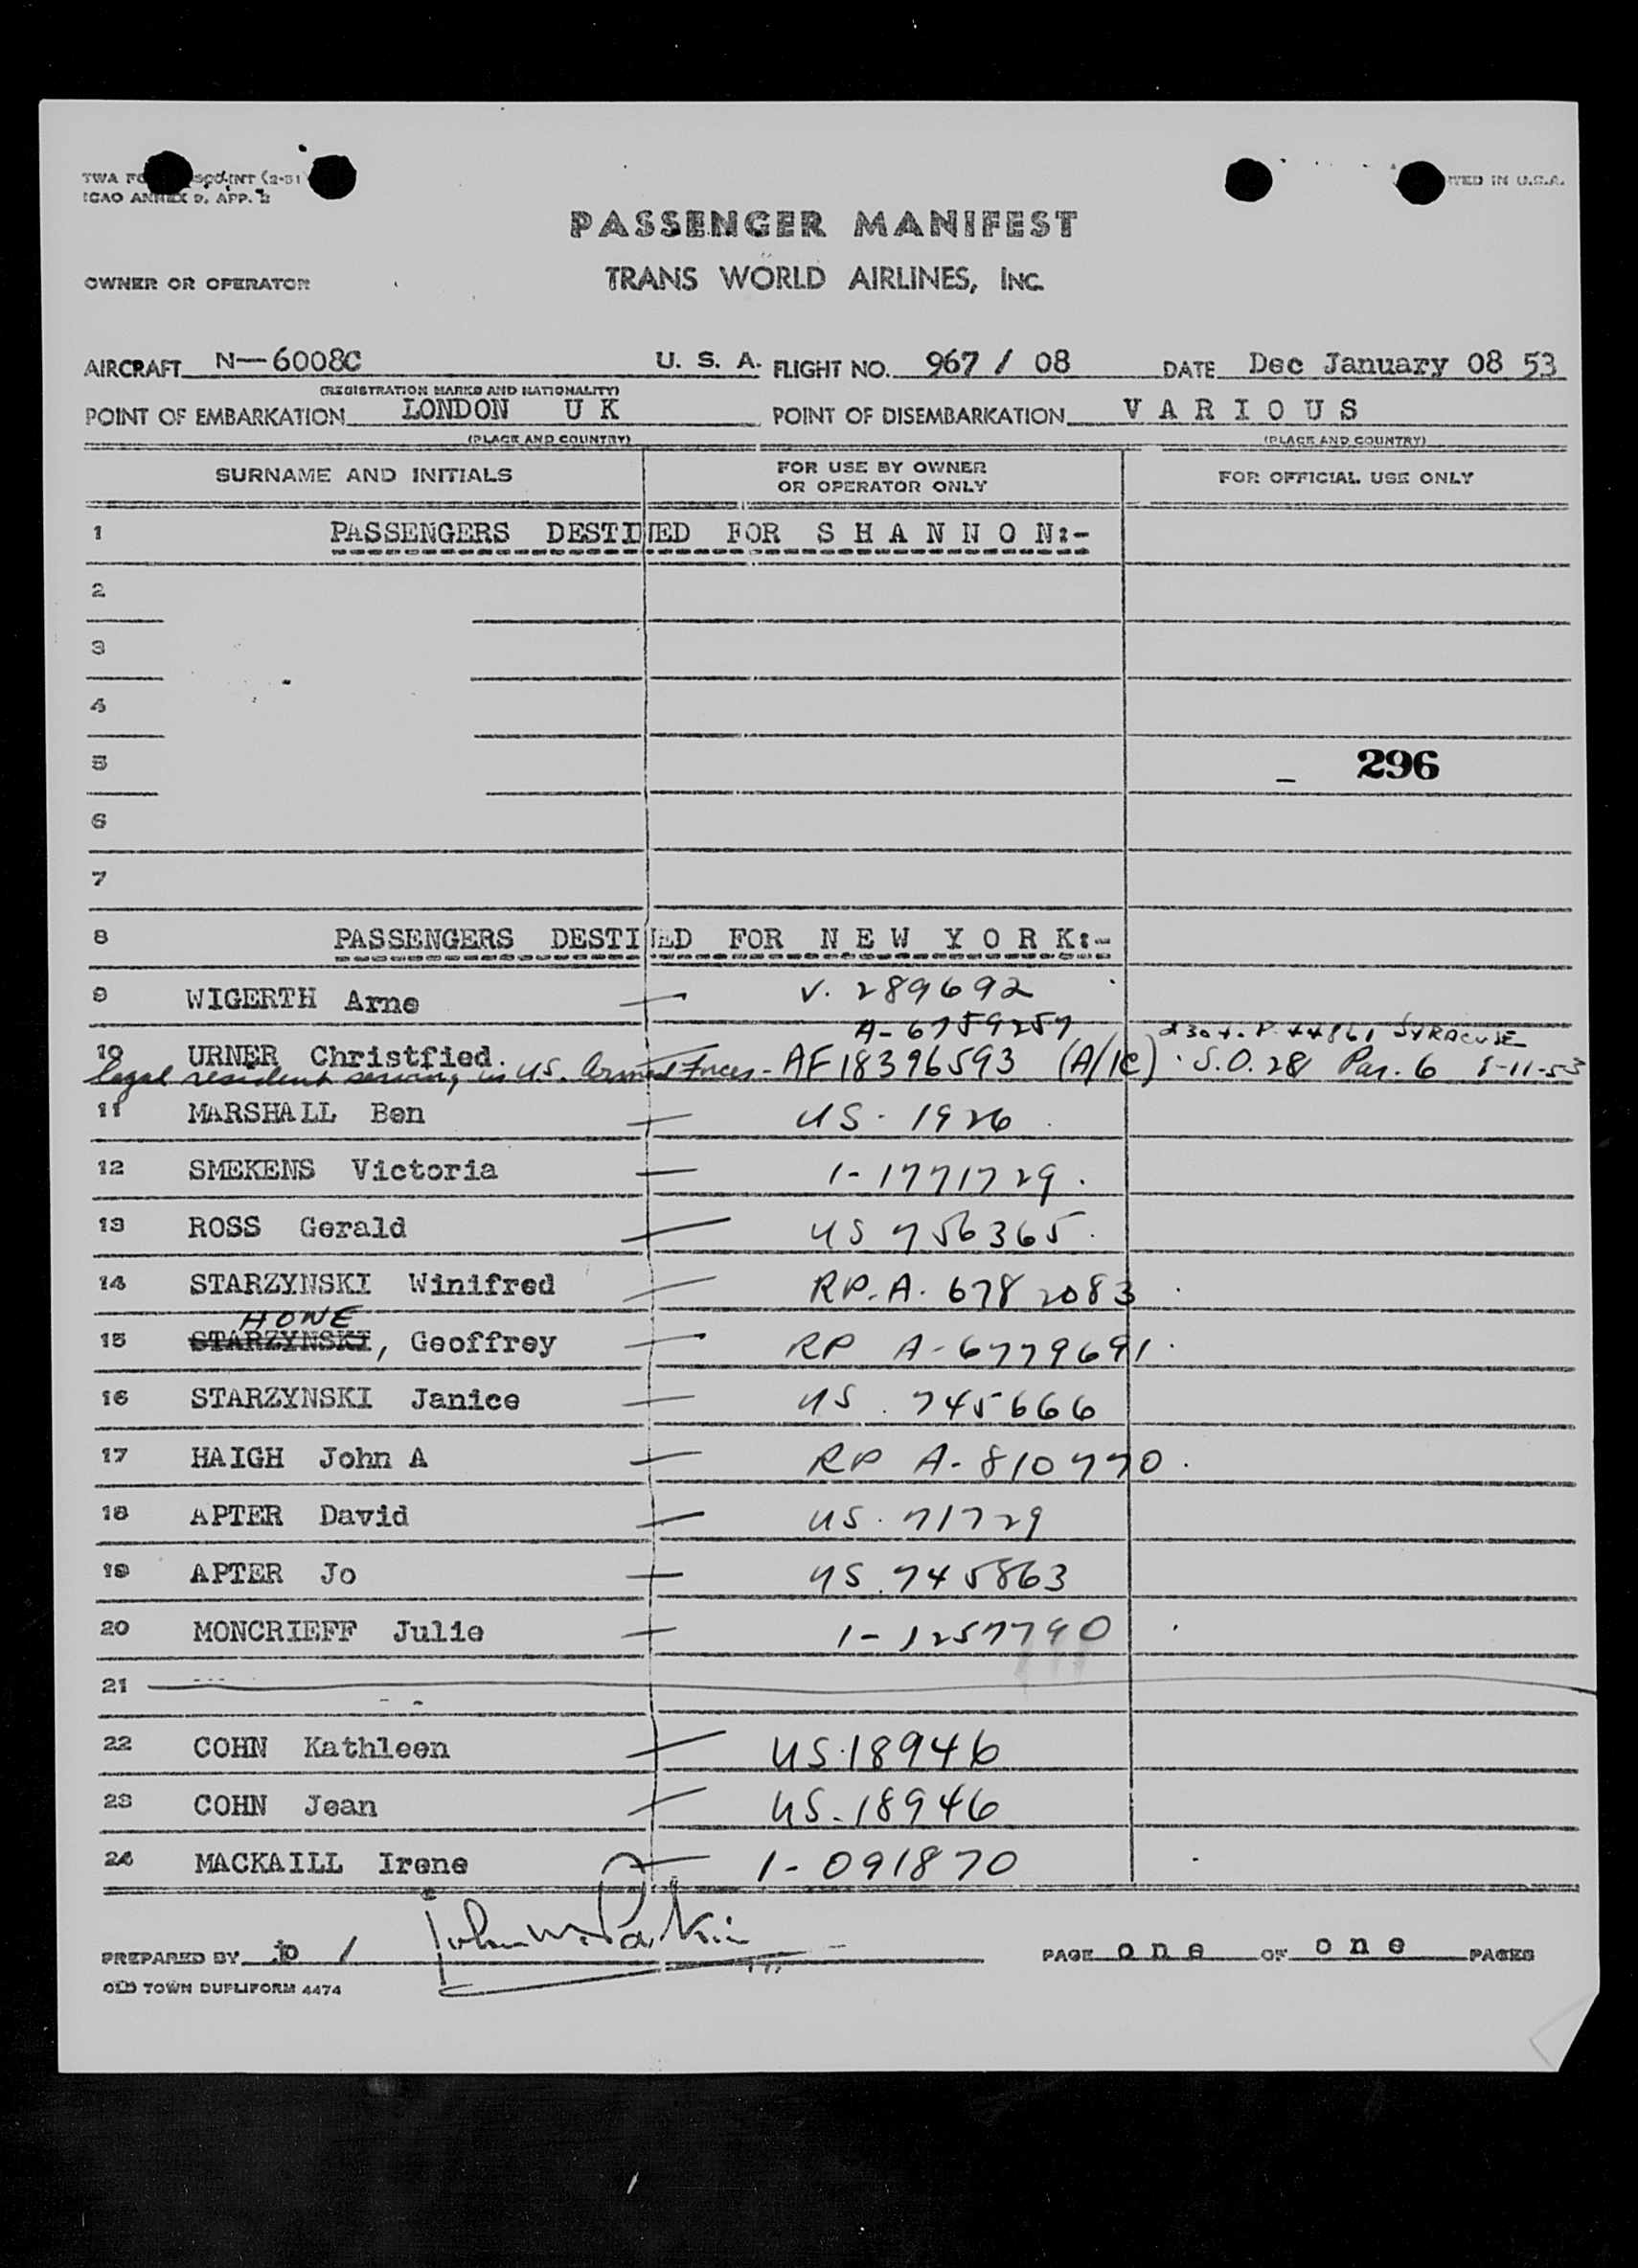 TWA FO
ICAO ANNEX 9, APP. 2
TED IN U.S.A.
PASSENGER MANIFEST
OWNER OR OPERATOR TRANS WORLD AIRLINES, INC.
AIRCRAFT N—6008C U. S. A. FLIGHT NO. 967 / 08 DATE Dec January 08 53
(REGISTRATION MARKS AND NATIONALITY)
POINT OF EMBARKATION LONDON U K POINT OF DISEMBARKATION V A R I O U S
(PLACE AND COUNTRY) (PLACE AND COUNTRY)
SURNAME AND INITIALS FOR USE BY OWNER OR OPERATOR ONLY FOR OFFICIAL USE ONLY
1 PASSENGERS DESTINED FOR S H A N N O N:-
2
3
4
5 296
6
7
8 PASSENGERS DESTINED FOR N E W Y O R K:-
9 WIGERTH Arne — V. 289692
A-6759257 SYRACUSE
10 URNER Christfied.
legal resident serving in U.S. Armed Forces - AF 18396593 (A/1C) S.O. 28 Par. 6 1-11-53
11 MARSHALL Ben — US. 1926
12 SMEKENS Victoria — 1-1771729.
13 ROSS Gerald — US 756365.
14 STARZYNSKI Winifred — RP. A. 6782083
HOWE
15 STARZYNSKI, Geoffrey — RP A-6779691.
16 STARZYNSKI Janice — US. 745666
17 HAIGH John A — RP A-810770.
18 APTER David — US. 71729
19 APTER Jo — US. 745863
20 MONCRIEFF Julie — 1-1257790
21
22 COHN Kathleen — US.18946
23 COHN Jean — US-18946
24 MACKAILL Irene — 1-091870
PREPARED BY jp / PAGE o n e OF o n e PAGES
OLD TOWN DUPLIFORM 4474